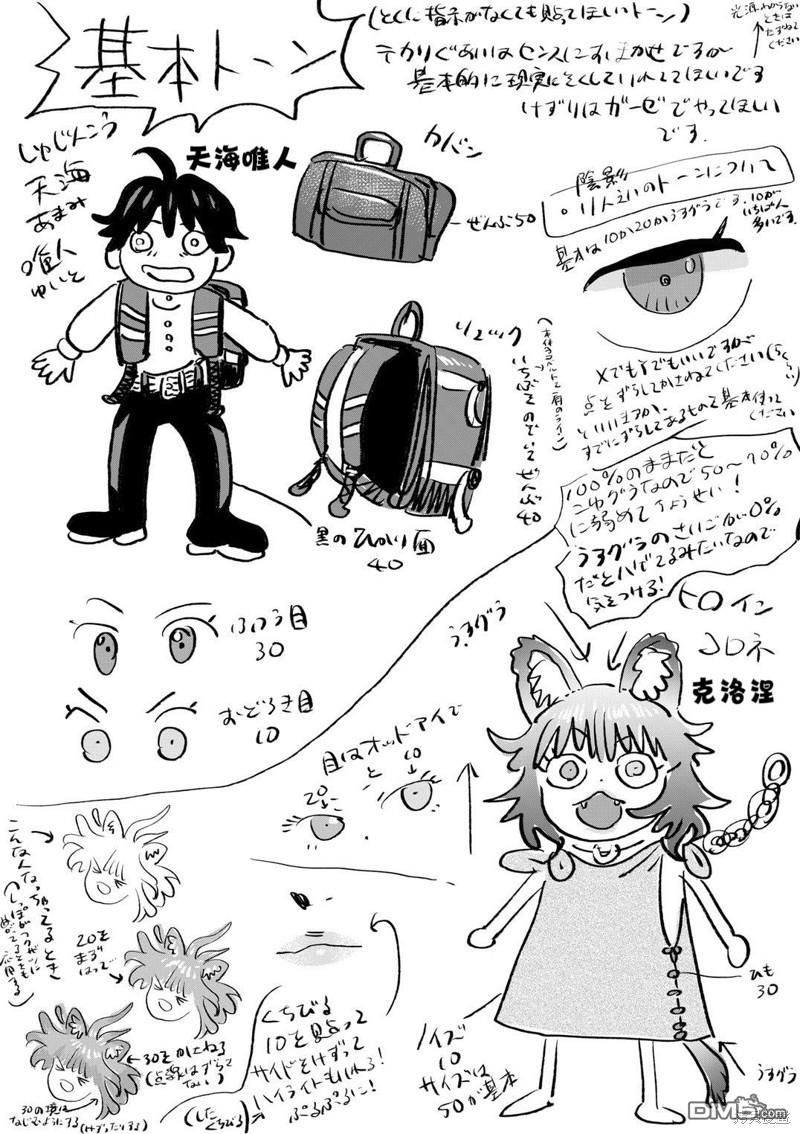 基本トーン
(とくに指示がなくても貼ってほしいトーン)
テカりぐあいはセンスにおまかせですが
基本的に現実にそくしていれてほしいです
けずりはガーゼでやってほしい
です。
光源わからない
ときは
たずねて
ください
しゅじんこう
天海
あまみ
唯人
ゆいと
天海唯人
カバン
ぜんぶ50
リュック
いちぶをのぞいてぜんぶ40
黒のひかり面
40
陰影
・りんえいのトーンについて
基本は10か20かうすグラです。10が
いちばん
多いです。
点をずらしてかさねてください
といいますが、
すでにずらしてあるもので基本作って
ください
100%のままだと
こゆグラなので50〜70%
に弱めてちょうせい!
うすグラのさいごが0%
だとハゲてるみたいなので
気をつける!
ふつう目
30
おどろき目
10
うすグラ
ヒロイン
コロネ
克洛涅
目はオッドアイで
20と10
こんなんなっちゃってるとき
20を
まずはって
30をかさねる
(点線はずらさ
ない)
30の境は
なじむようにする(けずったりする)
くちびる
10を貼って
サイドをけずって
ハイライトもいれる!
ぷるぷるに!
(したくちびる)
ノイズ
10
サイズは
50が基本
ひも
30
うすグラ
DM5.com